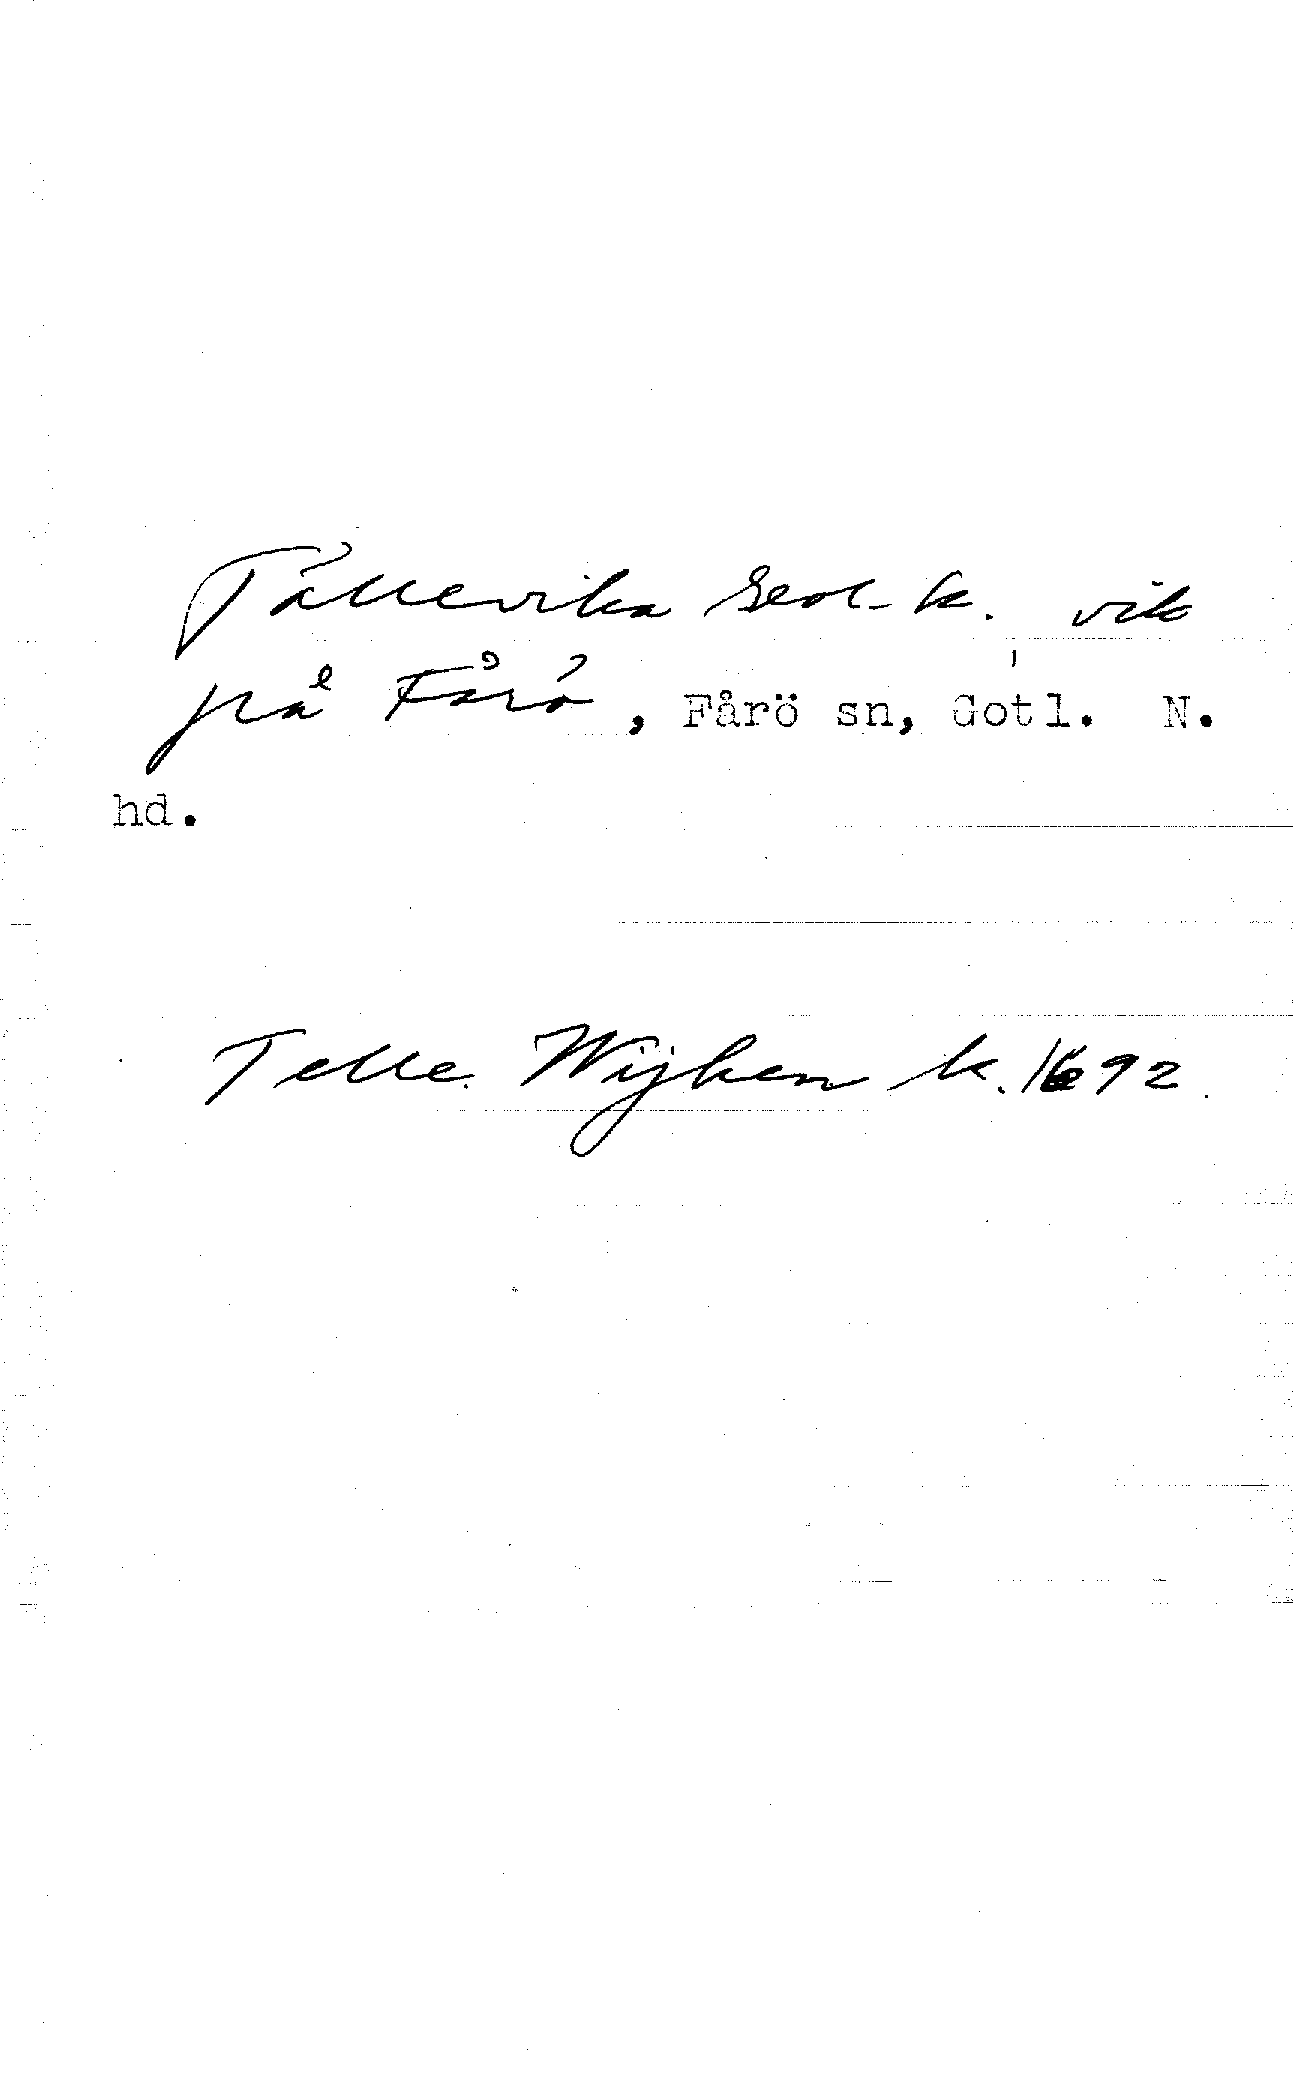 Tällevika Geol. k. vik
på Fårö, Fårö sn, Gotl. N.
hd.
Telle Wijken k. 1692